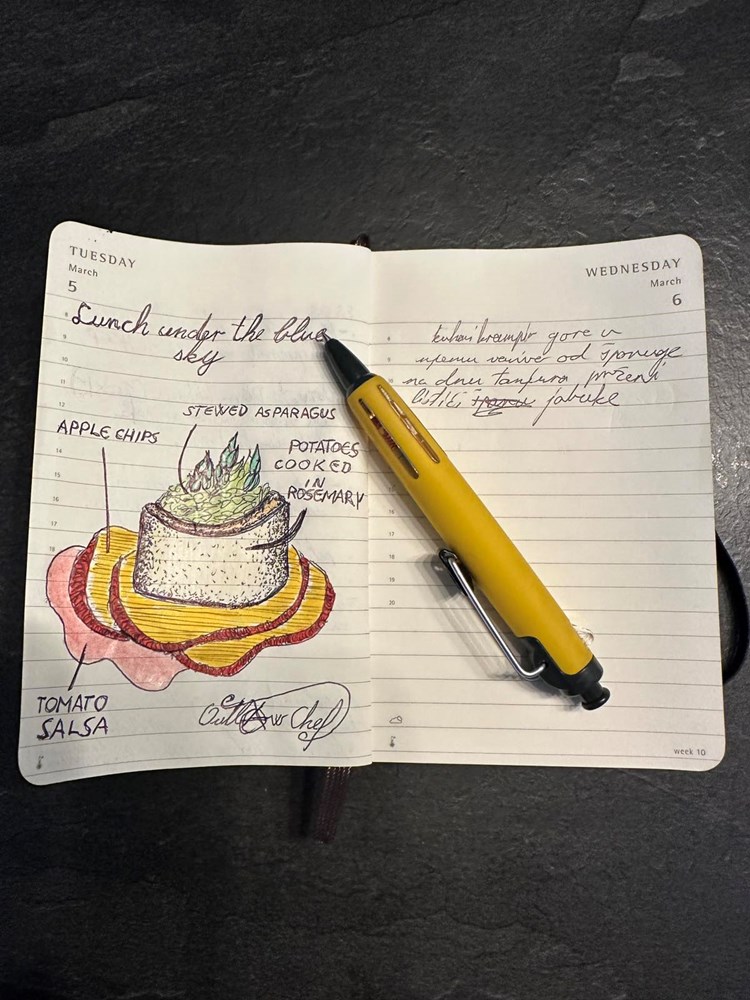 TUESDAY
March
5
Lunch under the blue
sky
STEWED ASPARAGUS
APPLE CHIPS
POTATOES
COOKED
IN
ROSEMARY
TOMATO
SALSA
Outlaw Chef
WEDNESDAY
March
6
kuhani krumpir gore u
njemu varivo od šparoge
na dnu tanjura prženi
listići jabuke
8
9
10
11
12
14
15
16
17
18
8
9
17
18
19
20
week 10